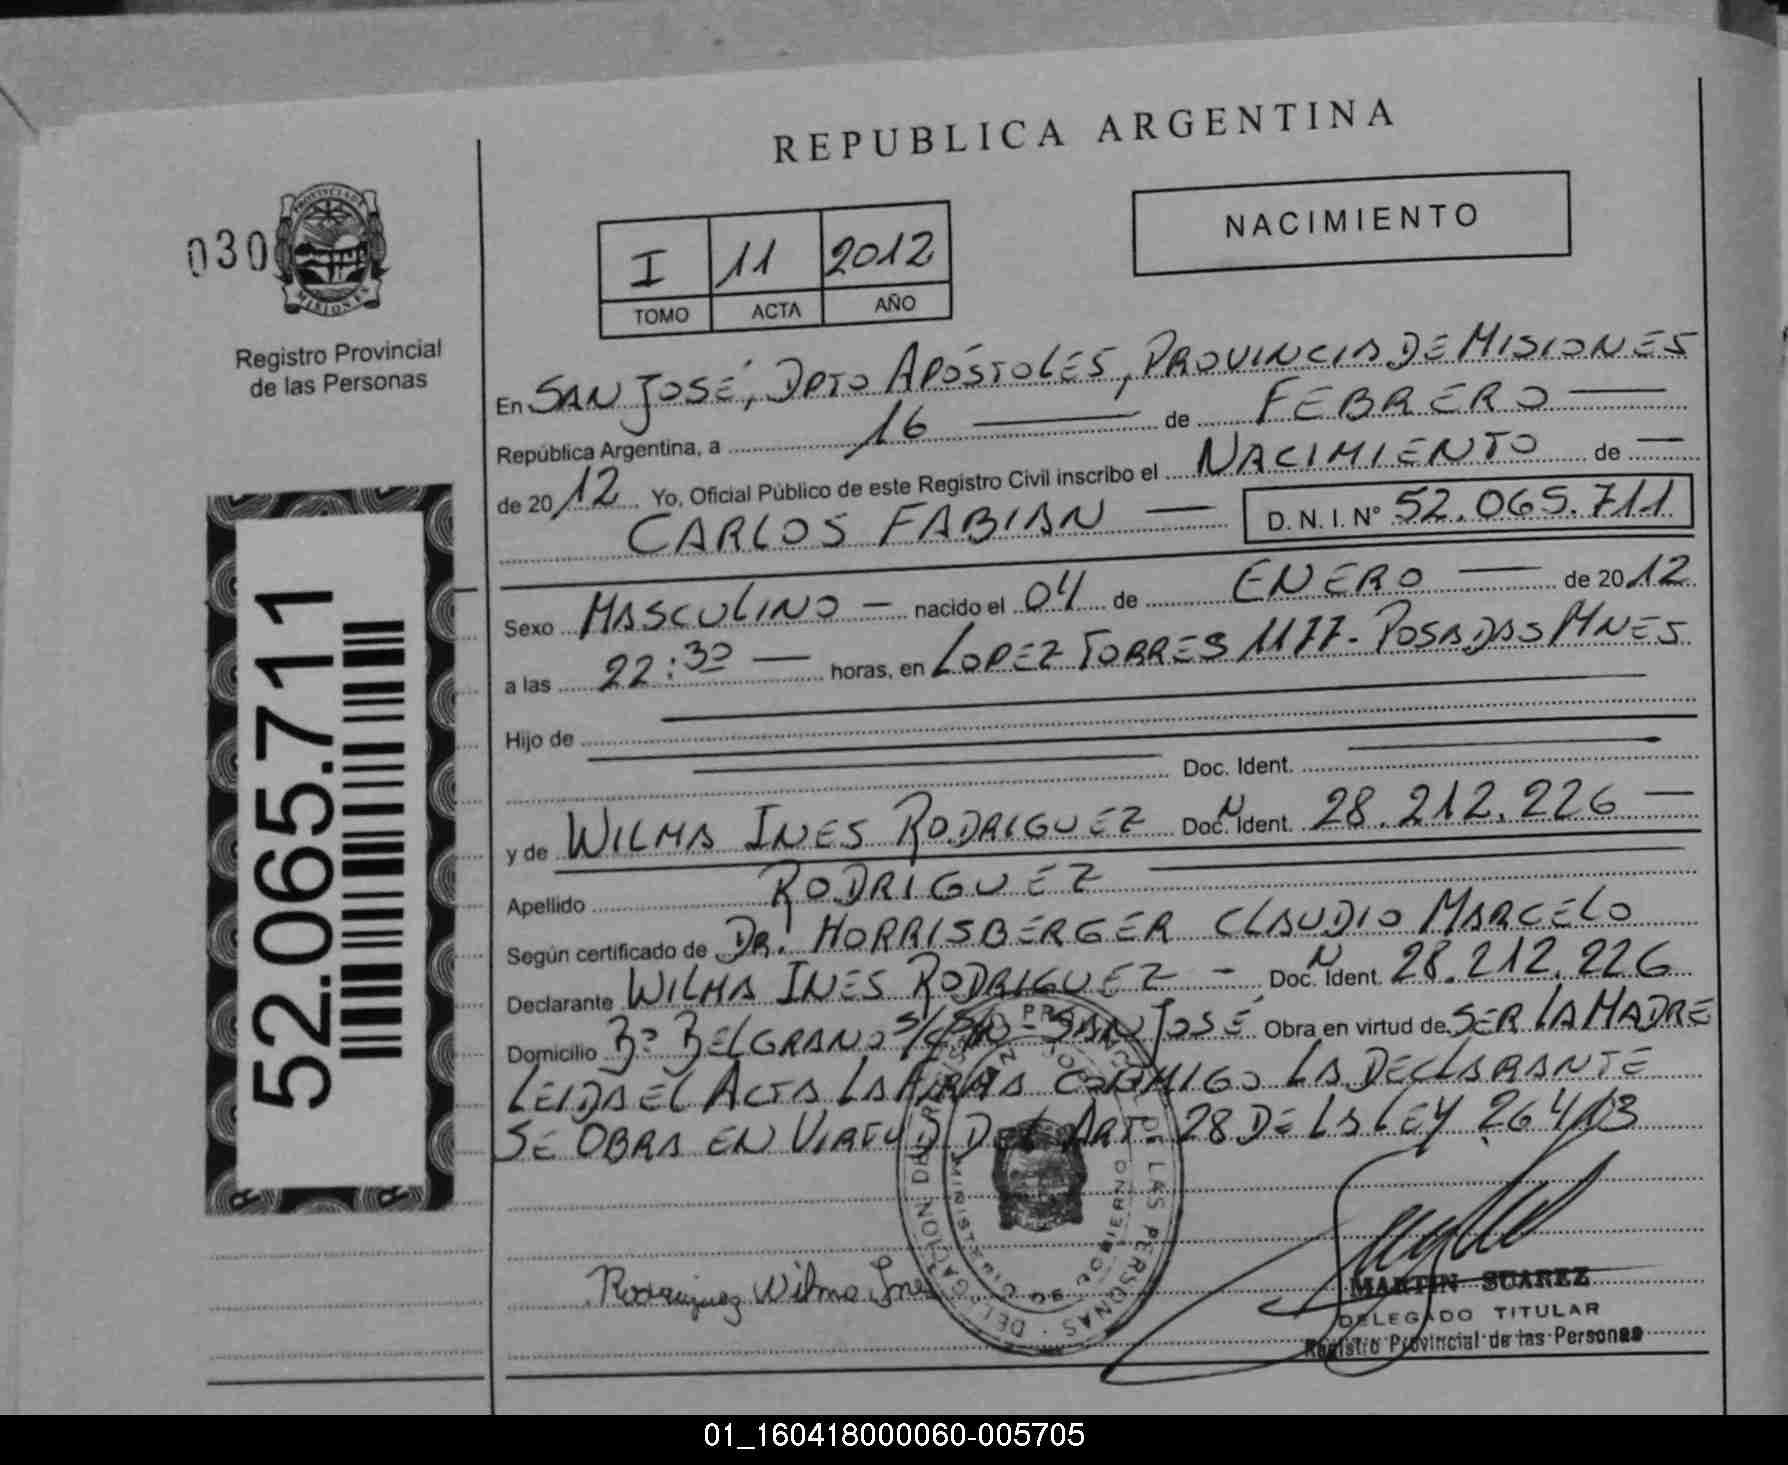 REPUBLICA ARGENTINA
NACIMIENTO
030
PROVINCIA DE
MISIONES
Registro Provincial
de las Personas
I 11 2012
TOMO ACTA AÑO
En SAN JOSÉ, DPTO APÓSTOLES, PROVINCIA DE MISIONES
República Argentina, a 16 — de FEBRERO —
de 2012 Yo, Oficial Público de este Registro Civil inscribo el NACIMIENTO de —
CARLOS FABIAN — D.N.I. N° 52.065.711
Sexo MASCULINO — nacido el 04 de ENERO — de 2012
a las 22:30 — horas, en LOPEZ TORRES 1177 - POSADAS MNES
Hijo de
Doc. Ident.
y de WILMA INES RODRIGUEZ Doc. N Ident. 28.212.226 —
Apellido RODRIGUEZ
Según certificado de DR. HORRISBERGER CLAUDIO MARCELO
Declarante WILMA INES RODRIGUEZ - Doc. N Ident. 28.212.226
Domicilio B° BELGRANO S/N - SAN JOSÉ Obra en virtud de SER LA MADRE
LEIDA EL ACTA LA FIRMA CONMIGO LA DECLARANTE
SE OBRA EN VIRTUD DEL ART. 28 DE LA LEY 26413
52.065.711
Rodriguez Wilma Ines
DE LAS PERSONAS · DELEGACION
MARTIN SUAREZ
DELEGADO TITULAR
Registro Provincial de las Personas
01_160418000060-005705